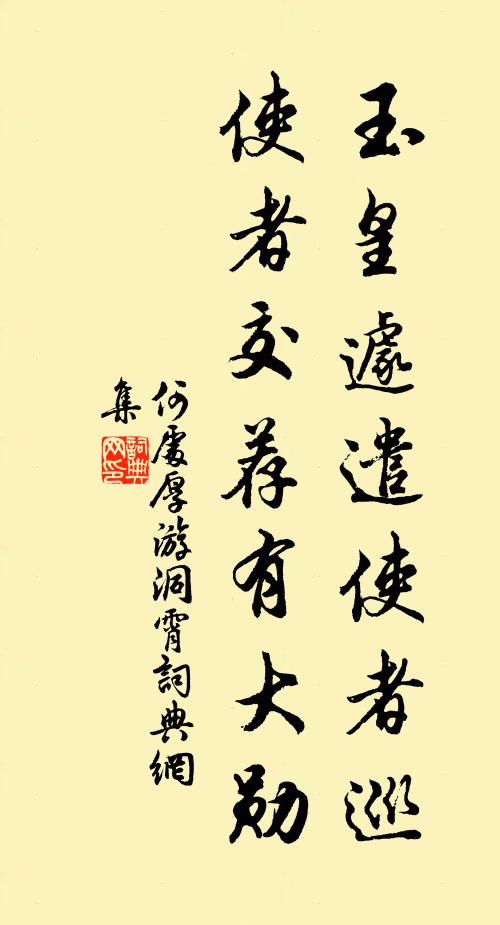 玉皇遽遣使者巡
使者交荐有大勋
何處厚游洞霄詞典網
集
詞典网印